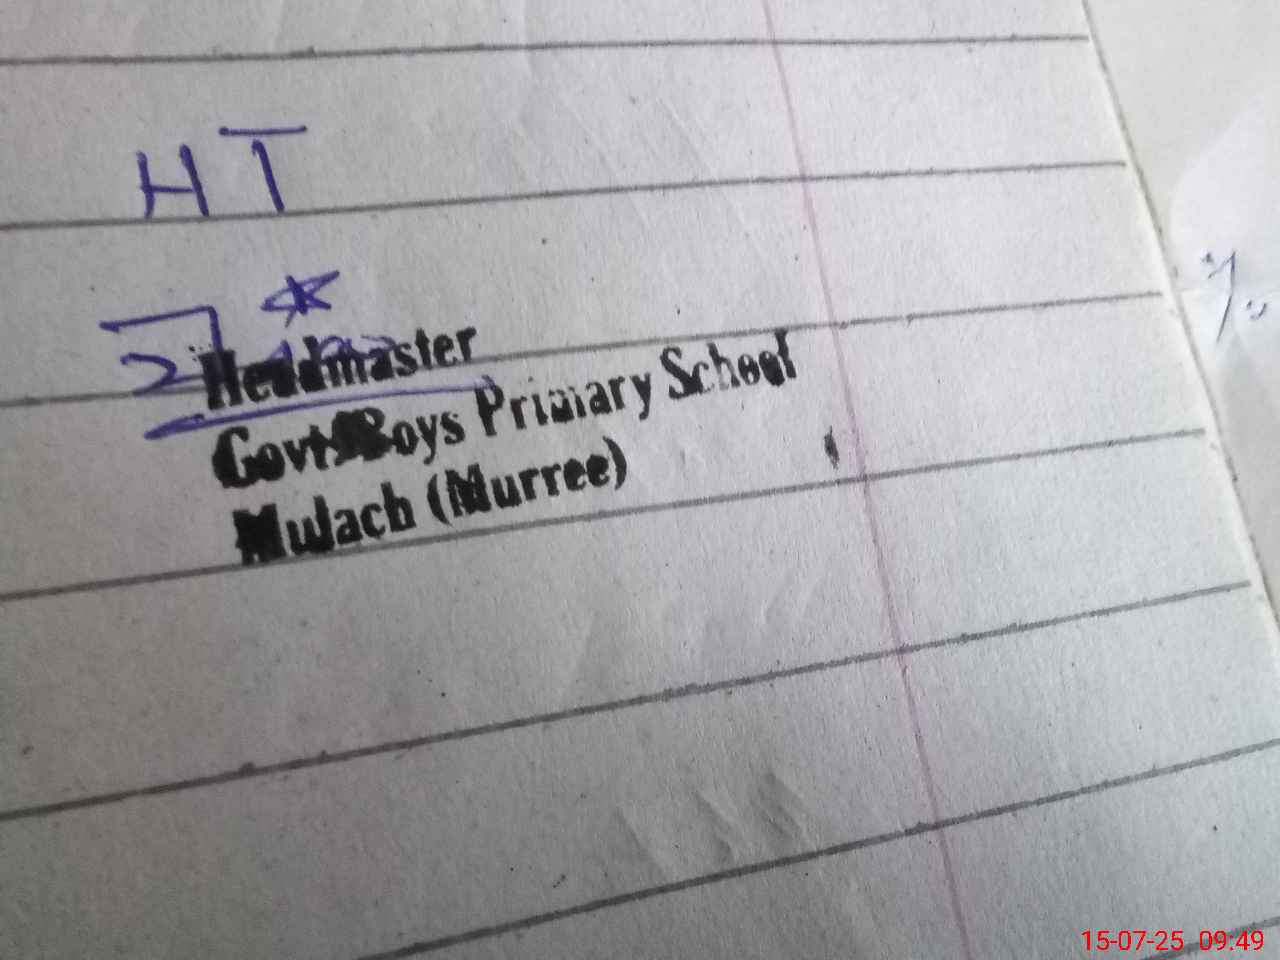 HT
Headmaster
Govt Boys Primary School
Mulach (Murree)
15-07-25 09:49